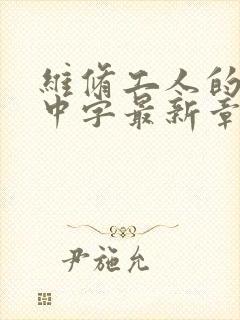 維修工人的
中字最新章
尹施允